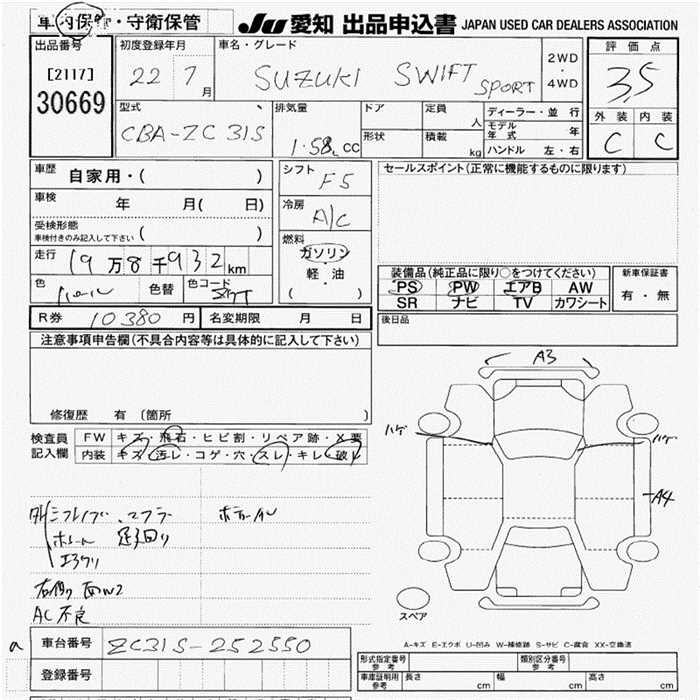 車内保管・守衛保管
JU 愛知 出品申込書 JAPAN USED CAR DEALERS ASSOCIATION
出品番号
[2117]
30669
初度登録年月
22 7 月
車名・グレード
SUZUKI SWIFT SPORT
2WD
・
4WD
評価点
3.5
外装 内装
C C
型式
CBA-ZC31S
排気量
1.58L CC
ドア
形状
定員 人
積載 kg
ディーラー・並行
モデル年式 年
ハンドル 左・右
車歴
自家用・( )
車検 年 月( 日)
受検形態
車検付きのみ記入して下さい ( )
走行 19万8千932km
色 パール 色替 色コード
シフト
F5
冷房
A/C
燃料
ガソリン
軽・油
( )
セールスポイント(正常に機能するものに限ります)
装備品(純正品に限り○をつけてください)
PS PW エアB AW
SR ナビ TV カワシート
新車保証書
有・無
R券 10380 円 名変期限 月 日
後日品
注意事項申告欄(不具合内容等は具体的に記入して下さい)
修復歴 有 〔箇所 〕
検査員
記入欄
FW キズ・飛石・ヒビ割・リペア跡・X要
内装 キズ・汚レ・コゲ・穴・スレ・キレ・破レ
A3
ハゲ
ハゲ
A4
外 マフラー
足回り
AC不良
スペア
A-キズ E-エクボ U-凹み W-補修跡 S-サビ C-腐食 XX-交換済
a 車台番号 ZC31S-252550
登録番号
形式指定番号
参考
類別区分番号
参考
車庫証明用
参考
長さ cm 幅 cm 高さ cm